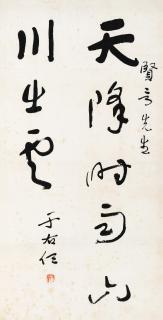 賢言先生
天降时雨山
川出云
于右任